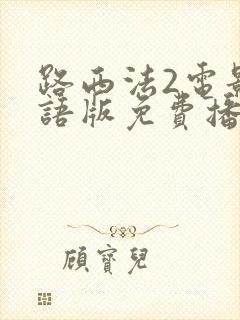 路西法2電影
語版免費播
顧寶兒